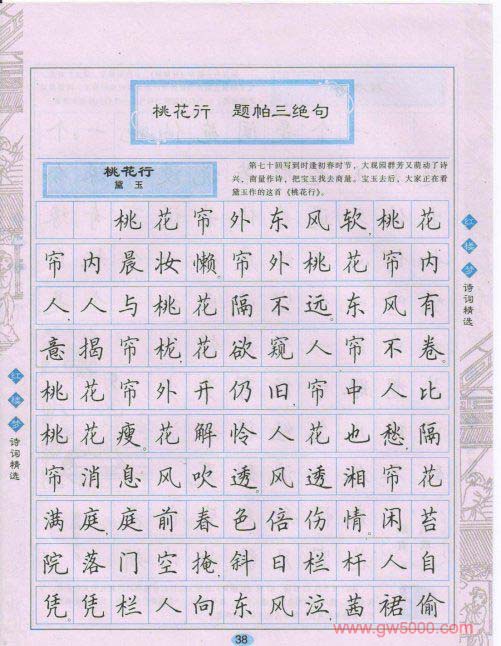 桃花行 题帕三绝句
桃花行
黛玉
第七十回写到时逢初春时节，大观园群芳又萌动了诗
兴，商量作诗，把宝玉找去商量。宝玉去后，大家正在看
黛玉作的这首《桃花行》。
桃花帘外东风软，桃花
帘内晨妆懒。帘外桃花帘内
人，人与桃花隔不远。东风有
意揭帘栊，花欲窥人帘不卷。
桃花帘外开仍旧，帘中人比
桃花瘦。花解怜人花也愁，隔
帘消息风吹透。风透湘帘花
满庭，庭前春色倍伤情。闲苔
院落门空掩，斜日栏杆人自
凭。凭栏人向东风泣，茜裙偷
红楼梦
诗词精选
红楼梦
诗词精选
38
www.gw5000.com